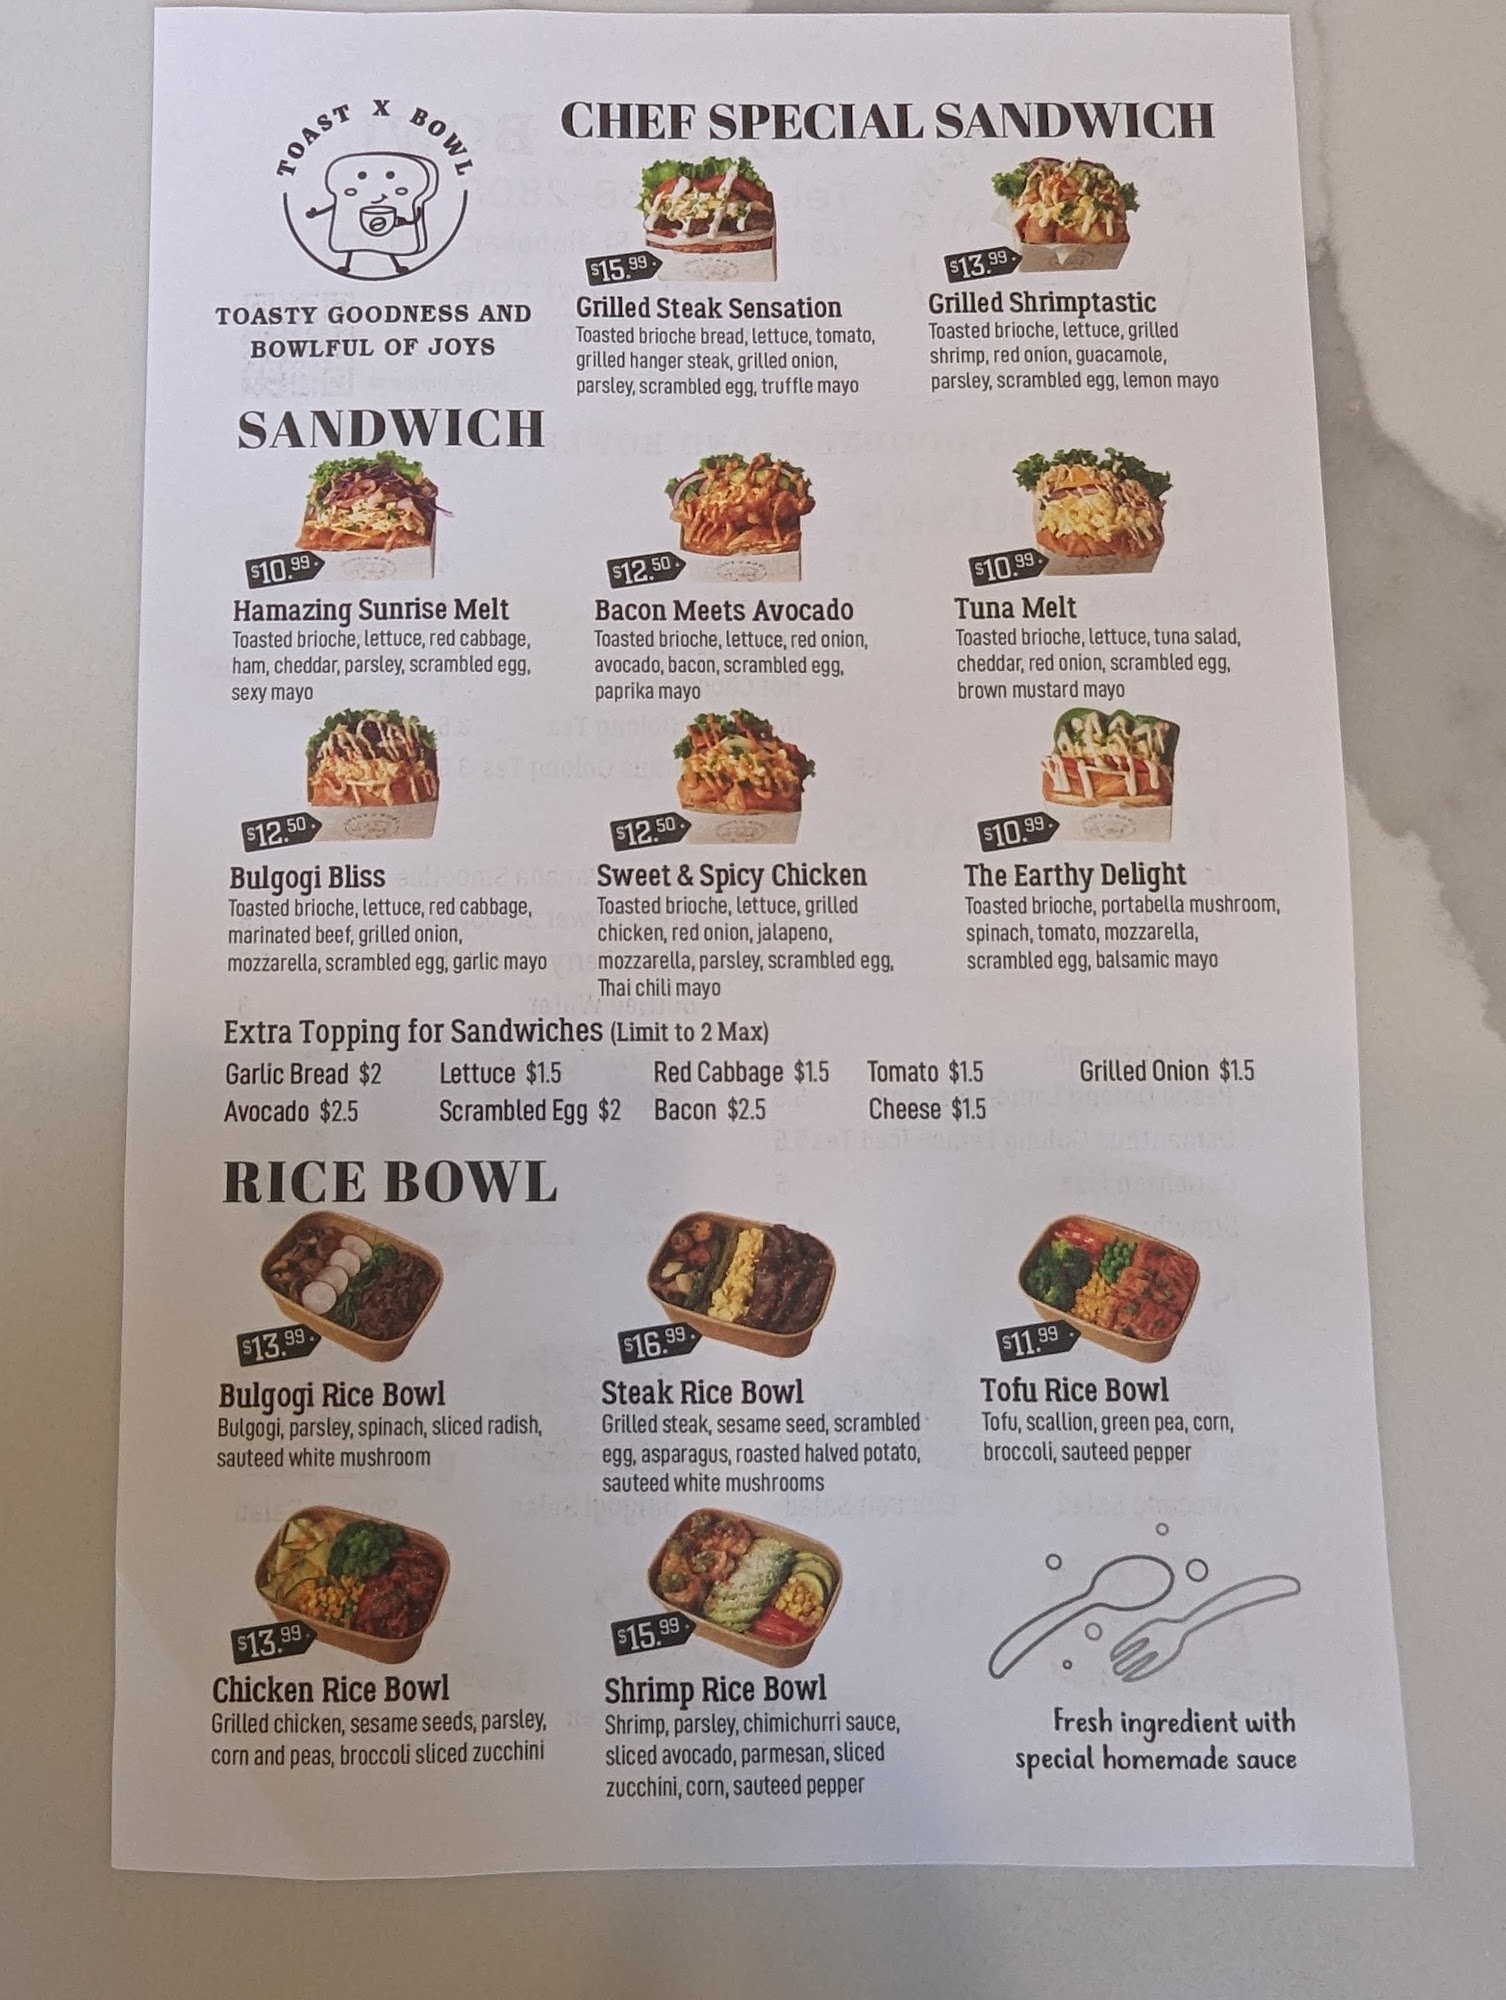 TOAST X BOWL
TOASTY GOODNESS AND
BOWLFUL OF JOYS
CHEF SPECIAL SANDWICH
$15.99
Grilled Steak Sensation
Toasted brioche bread, lettuce, tomato,
grilled hanger steak, grilled onion,
parsley, scrambled egg, truffle mayo
$13.99
Grilled Shrimptastic
Toasted brioche, lettuce, grilled
shrimp, red onion, guacamole,
parsley, scrambled egg, lemon mayo
SANDWICH
$10.99
Hamazing Sunrise Melt
Toasted brioche, lettuce, red cabbage,
ham, cheddar, parsley, scrambled egg,
sexy mayo
$12.50
Bacon Meets Avocado
Toasted brioche, lettuce, red onion,
avocado, bacon, scrambled egg,
paprika mayo
$10.99
Tuna Melt
Toasted brioche, lettuce, tuna salad,
cheddar, red onion, scrambled egg,
brown mustard mayo
$12.50
Bulgogi Bliss
Toasted brioche, lettuce, red cabbage,
marinated beef, grilled onion,
mozzarella, scrambled egg, garlic mayo
$12.50
Sweet & Spicy Chicken
Toasted brioche, lettuce, grilled
chicken, red onion, jalapeno,
mozzarella, parsley, scrambled egg,
Thai chili mayo
$10.99
The Earthy Delight
Toasted brioche, portabella mushroom,
spinach, tomato, mozzarella,
scrambled egg, balsamic mayo
Extra Topping for Sandwiches (Limit to 2 Max)
Garlic Bread $2 Lettuce $1.5 Red Cabbage $1.5 Tomato $1.5 Grilled Onion $1.5
Avocado $2.5 Scrambled Egg $2 Bacon $2.5 Cheese $1.5
RICE BOWL
$13.99
Bulgogi Rice Bowl
Bulgogi, parsley, spinach, sliced radish,
sauteed white mushroom
$16.99
Steak Rice Bowl
Grilled steak, sesame seed, scrambled
egg, asparagus, roasted halved potato,
sauteed white mushrooms
$11.99
Tofu Rice Bowl
Tofu, scallion, green pea, corn,
broccoli, sauteed pepper
$13.99
Chicken Rice Bowl
Grilled chicken, sesame seeds, parsley,
corn and peas, broccoli sliced zucchini
$15.99
Shrimp Rice Bowl
Shrimp, parsley, chimichurri sauce,
sliced avocado, parmesan, sliced
zucchini, corn, sauteed pepper
Fresh ingredient with
special homemade sauce